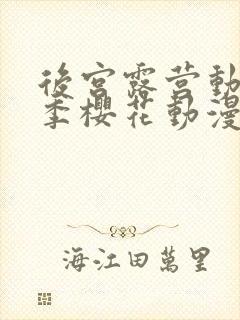 後宮露营動
季櫻花動漫
海江田萬里